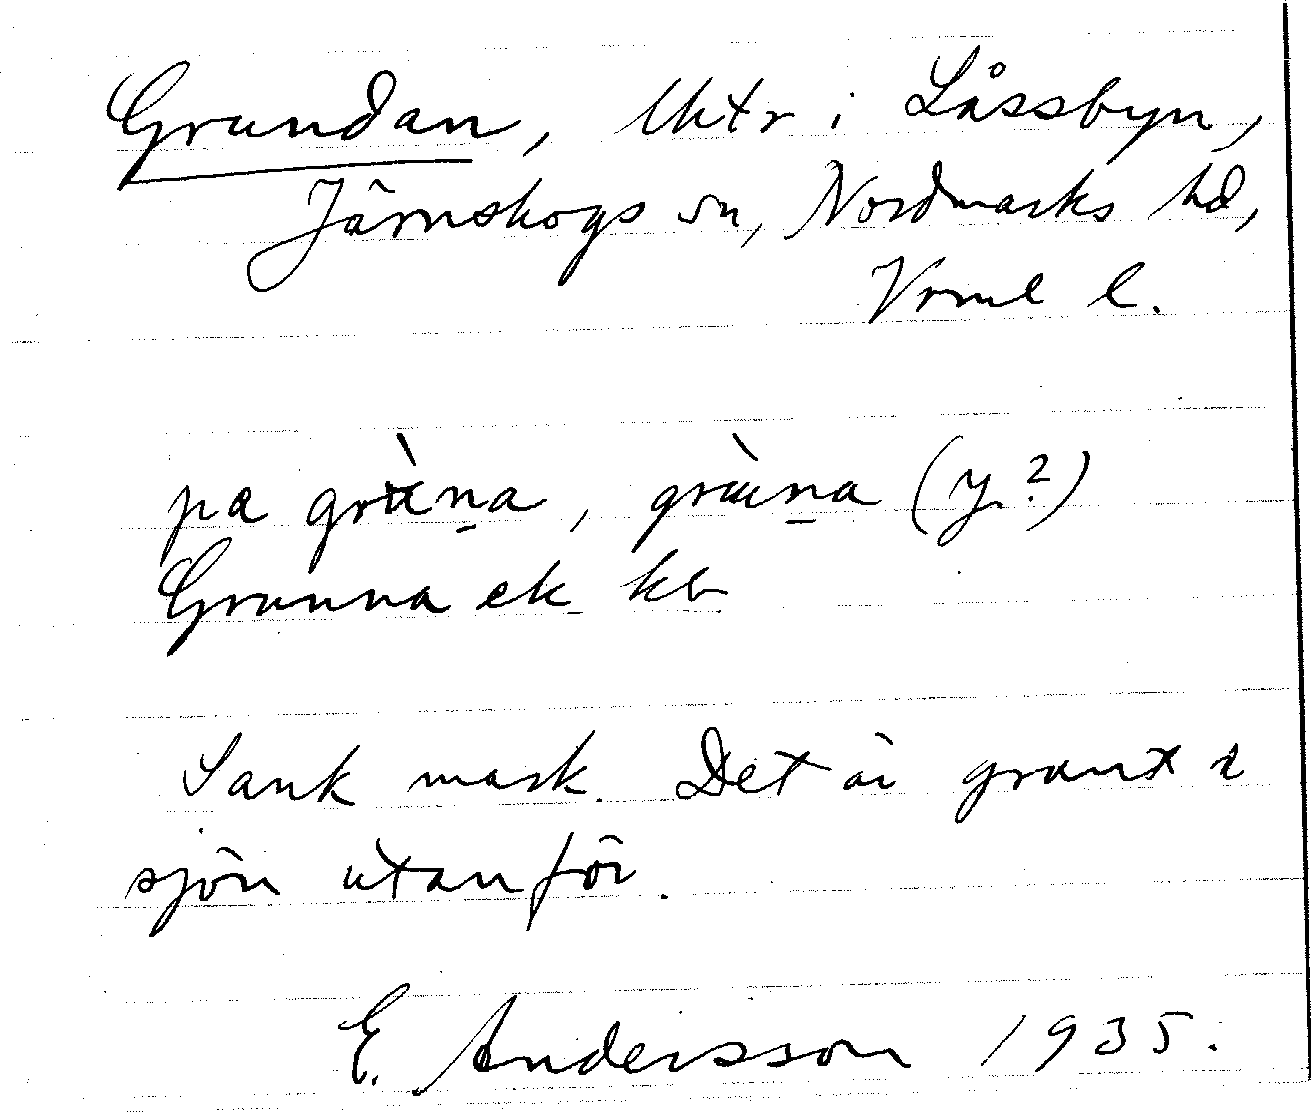 Grundan, Uktr i Låssbyn,
Järnskogs sn, Nordmarks hd,
Vrml l.
pa grùna, gruna (y.?)
Grunna ek kb
Sank mark. Det är grunt i
sjön utanför.
E. Andersson 1935.